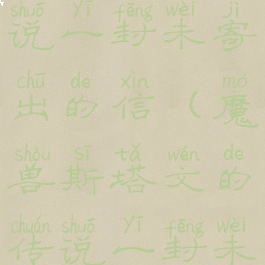 shuō yī fēng wèi jì
说一封未寄
chū de xìn mó
出的信（魔
shòu sī tǎ wén de
兽斯塔文的
chuán shuō yī fēng wèi
传说一封未